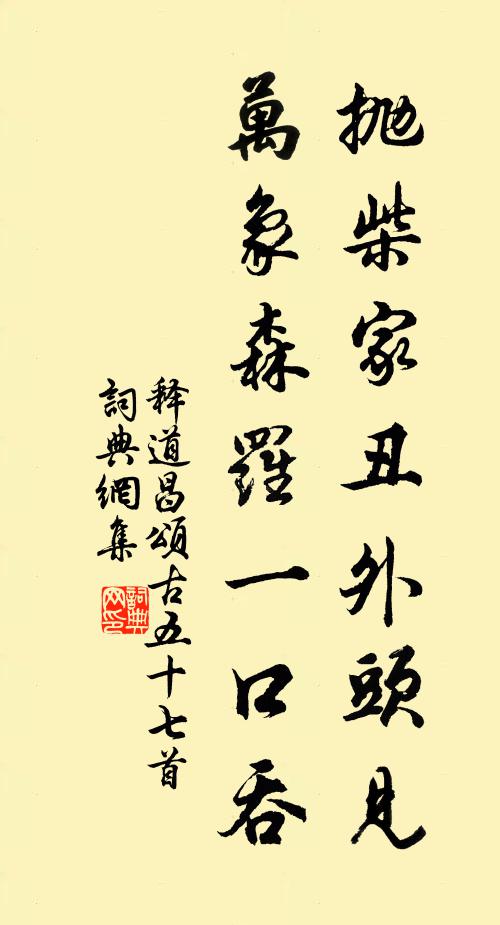 拋柴家丑外頭見
萬象森羅一口吞
释道昌頌古五十七首
詞典網集
詞典
网印